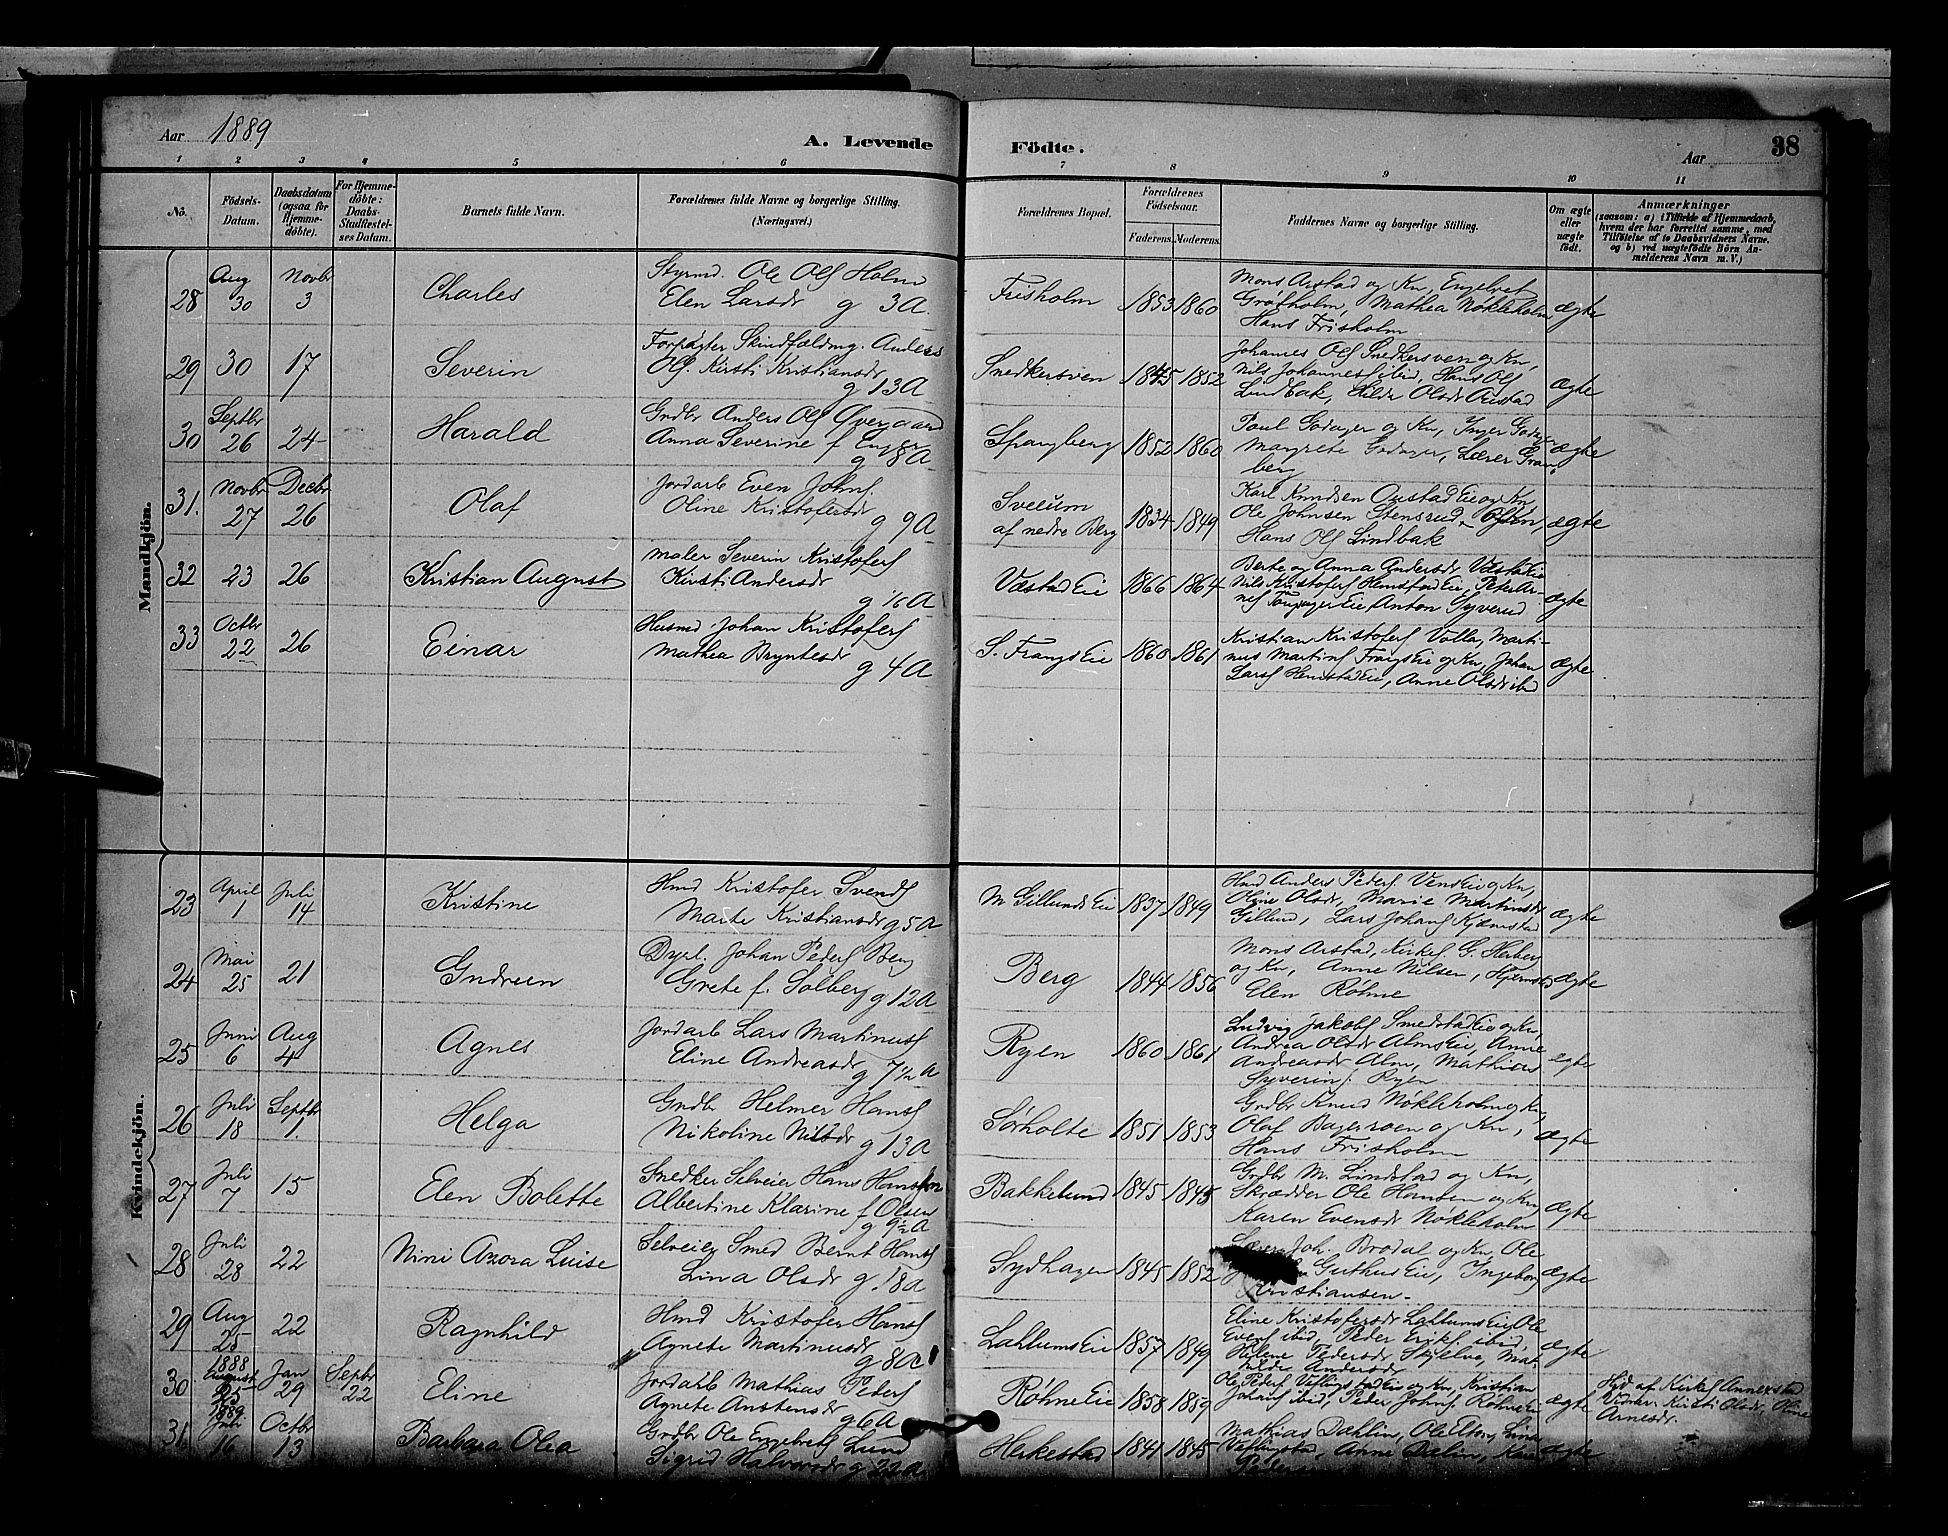 Aar 1889
A. Levende
Födte.
Aar
38
1 2 3 4 5 6 7 8 9 10 11
No.
Födsels-
Datum.
Daabsdatum
(ogsaa for
Hjemme-
döbte).
For Hjemme-
döbte:
Daabs-
Stadfæstel-
ses Datum.
Barnets fulde Navn.
Forældrenes fulde Navne og borgerlige Stilling.
(Næringsvei.)
Forældrenes Bopæl.
Forældrenes
Födselsaar.
Faderens. Moderens.
Faddernes Navne og borgerlige Stilling.
Om ægte
eller
uægte
födt.
Anmærkninger
(saasom: a) i Tilfælde af Hjemmedaab,
hvem der har forrettet samme, med
Tilföielse af to Daabsvidners Navne.
og b) ved uægtefödte Börn An-
melderens Navn m. V.)
Mandkjön.
28
Aug
30
Novbr
3
Charles
Styrmd. Ole Ols Holm
Elen Larsdr g 3 A.
Frisholm
1853 1860
Mons Arstad og Kn, Engebret
Grøtholm, Mathea Nøkleholm
Hans Frisholm
ægte
29 30 17
Severin
Forpagter Skindfældmg. Anders
Ols. Kirsti Kristiansdr
g 13 A
Snedkersven
1845 1852
Johannes Ols Snedkersven og Kn,
Nils Johannes ibid, Hans Ols
Lindbak, Hilda Olsdr Austad
ægte
30
Septbr
26 24
Harald
Grdbr Anders Ols Övergaard
Anna Severine f. Enger
g 8 A
Spangberg
1852 1860
Poul Godager og Kn, Inger Godager
Margrete Godager, Lærer Gran-
berg
ægte
31.
Novbr
27
Decbr
26
Olaf
Jordarb Even Johns.
Oline Kristofersdr
g 9 A
Sveum
af nedre Berg
1834 1849
Karl Knudsen Austad Eie og Kn
Ole Johnsen Stensrud,
Hans Ols Lindbak
ægte
32 23 26
Kristian August
Maler Severin Kristofers
Kirsti Andersdr
g 1/6 A
Væstad Eie
1866 1864
Berte og Anna Andersdr Væstad Eie
Nils Kristofers Hemstad Eie, Peter Ar-
nes Eie Anton Gyverud
ægte
33
Octbr
22 26
Einar
Husmd Johan Kristofers
Mathea Bryntesdr
g 4 A
S. Frangs Eie
1860 1861
Kristian Kristofers Volla, Marti-
nus Martins Frangs Eie og Kn, Johan
Lars Hemstad Eie, Anne Olsdr ibid
ægte
Kvindekjön.
23
April
1
Juli
14
Kristine
Hmd Kristofer Svends
Marte Kristiansdr g 5 A
M Gillunds Eie
1837 1849
Hmd Anders Peders. Vens Eie og Kn,
Oline Olsdr, Marie Martinsdr
Gillund, Lars Johans Kjønstad
ægte
24
Mai
25 21
Gudrun
Dyrl. Johan Peders Berg
Grete f. Solberg g 12 A
Berg
1844 1856
Mons Arstad, Kirkes. G. Herberg
og Kn, Anne Nilsen, Hjemstad
Elen Røhne
ægte
25
Juni
6
Aug
4
Agnes
Jordarb Lars Martinus
Eline Andreasdr
g 7 1/2 A
Ryen
1860 1861
Ludvig Jakobs Smedstad Eie og Kn,
Andrea Olsdr Alms Eie, Anne
Andreasdr Alm, Mathias
Syverins. Ryen
ægte
26
Juli
18
Septbr
1.
Helga
Grdbr Helmer Hans
Nikoline Nilsdr g 13 A
Sørholte
1851 1853
Grdbr Knud Nøkleholm og Kn,
Olaf Bagersven og Kn,
Hans Frisholm
ægte
27
Juli
7 15
Elen Bolette
Snedker Selveier Hans Hansen
Albertine Klarine f. Olsen
g 9 1/2 A
Bakkelund
1845 1845
Grdbr M. Lindstad og Kn,
Skrædder Ole Hansen og Kn
Karen Evensdr Nøkleholm
ægte
28
Juli
28 22
Nini Azora Luise
Selveier Smed Bernt Hans
Lina Olsdr g. 18 A
Sydhagen
1845 1852
Joh. Brodal og Kn, Ole
Guthus Eie, Ingeborg
Kristiansen.
ægte
29
Aug
25 22
Ragnhild
Hmd Kristofer Hans
Agnete Martinusdr
g 8 A
Lahlums Eie
1857 1849
Eline Kristofersdr Lahlums Eie, Ole
Evens ibid, Peder Eriks. ibid,
Helene Pedersdr Skjelva, Mat-
hilde Andersdr
ægte
30
1888
August
25
Jan
29
Septbr
22
Eline
Jordarb Mathias Peders
Agnete Anstensdr
g 6 A
Røhne Eie
1858 1859
Ole Peders Eie og Kn, Kristian
Johans ibid, Peder Johns. Røhne Eie
ægte
Hjd af Kirkes Annexstad
Vidner Kirsti Olsdr, Oline
Arnesdr.
31.
1889
Juli
16
Octbr
13
Barbara Olea
Grdbr Ole Engebrets Lund
Sigrid Halvorsdr g 22 A
Herkestad
1841 1845
Mathias Dæhlin, Ole Lina
Anne Dælin, Karen
Pedersen
ægte